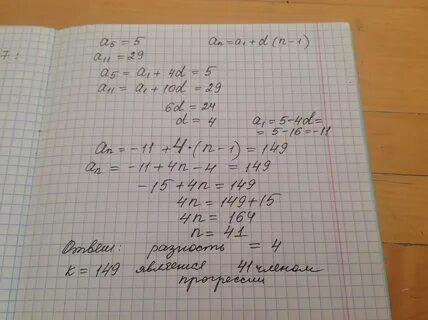 7:
a₅ = 5 aₙ = a₁ + d (n-1)
a₁₁ = 29
a₅ = a₁ + 4d = 5
a₁₁ = a₁ + 10d = 29
6d = 24
d = 4 a₁ = 5-4d =
= 5-16 = -11
aₙ = -11 + 4·(n-1) = 149
aₙ = -11 + 4n - 4 = 149
-15 + 4n = 149
4n = 149 + 15
4n = 164
n = 41
Ответ: разность = 4
к = 149 является 41 членом
прогрессии